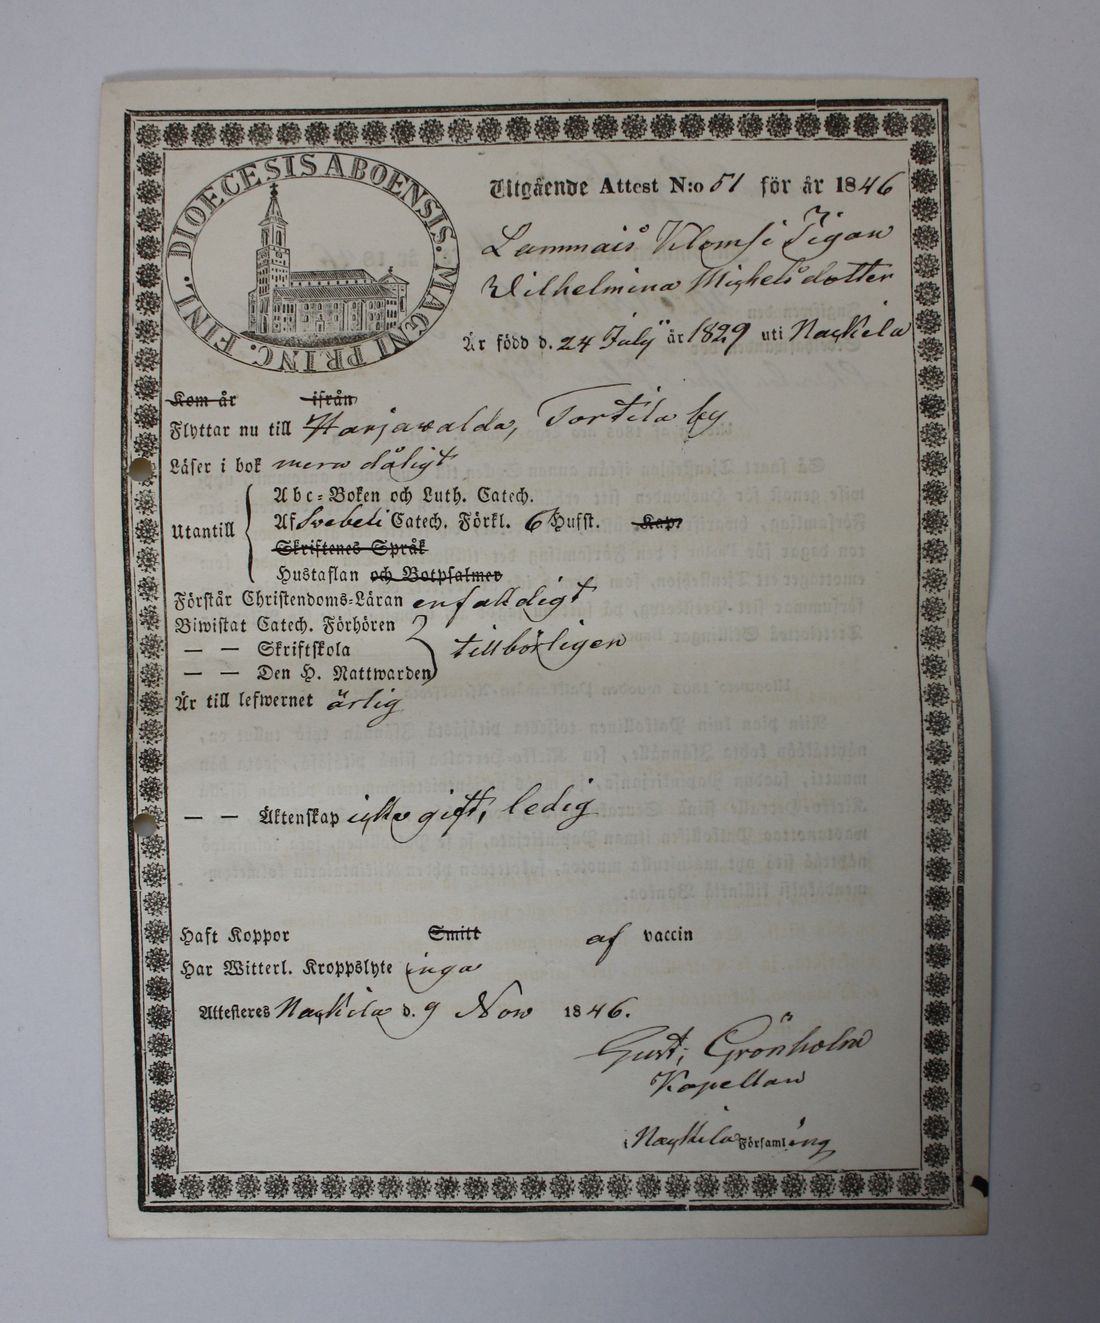 DIOECESIS ABOENSIS. MAGNI PRINC. FINL.
Utgående Attest N:o 51 för år 1846
Lammais Klomsi Pigan
Wilhelmina Michelsdotter
Är född d. 24 July är 1829 uti Nackila
Kom år ifrån
Flyttar nu till Harjawalda, Torttila by
Läser i bok mera dåligt
Utantill
Abc-Boken och Luth. Catech.
Af Svebeli Catech. Förkl. 6 Hufst. Kap.
Skriftenes Språk
Hustaflan och Botpsalmer
Förstår Christendoms-Läran enfaldigt
Biwistat Catech. Förhören
— — Skriftskola tillbörligen
— — Den H. Nattwarden
Är till lefwernet ärlig
— — Äktenskap icke gift, ledig
Haft Koppor Smitt af vaccin
Har Witterl. Kroppslyte inga
Attesteres Nackila d. 9 Nov 1846.
Gust. Grönholm
Kapellan
i Nackila Församl ing